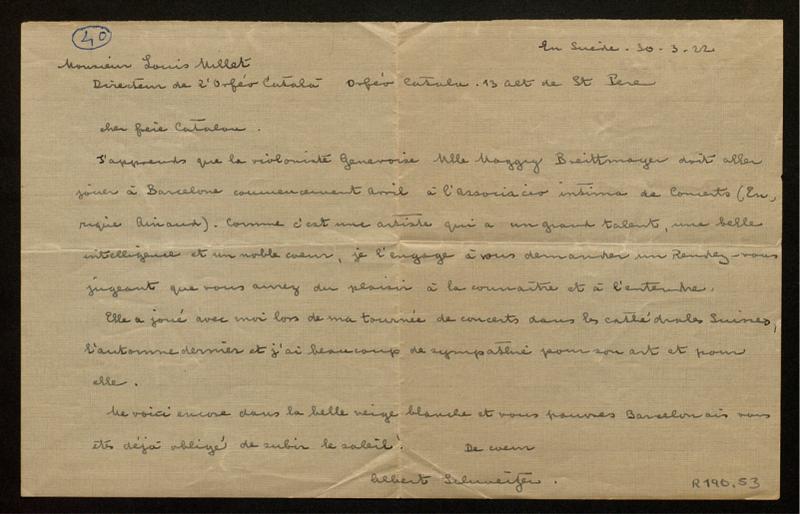 40
En Suède. 30-3-22
Monsieur Louis Millet
Directeur de l'Orféo Català Orféo Catala. 13 Alt de St Pere
cher frère Catalan.
J'apprends que la violoniste Genevoise Mlle Maggy Breittmayer doit aller
jouer à Barcelone commencement Avril à l'Associacio intima de Concerts (En,
rique Ainaud). Comme c'est une artiste qui a un grand talent, une belle
intelligence et un noble coeur, je l'engage à vous demander un Rendez-vous
jugeant que vous aurez du plaisir à la connaître et à l'entendre.
Elle a joué avec moi lors de ma tournée de concerts dans les cathédrales Suisses,
l'automne dernier et j'ai beaucoup de sympathie pour son art et pour
elle.
Me voici encore dans la belle neige blanche et vous pauvres Barcelonais vous
êts déjà obligé de subir le soleil!
De coeur
Albert Schweitzer.
R190.53